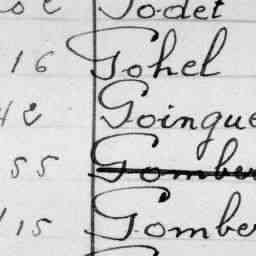 Godet
16 Gohel
42 Goingue
55 Gomber
115 Gomber